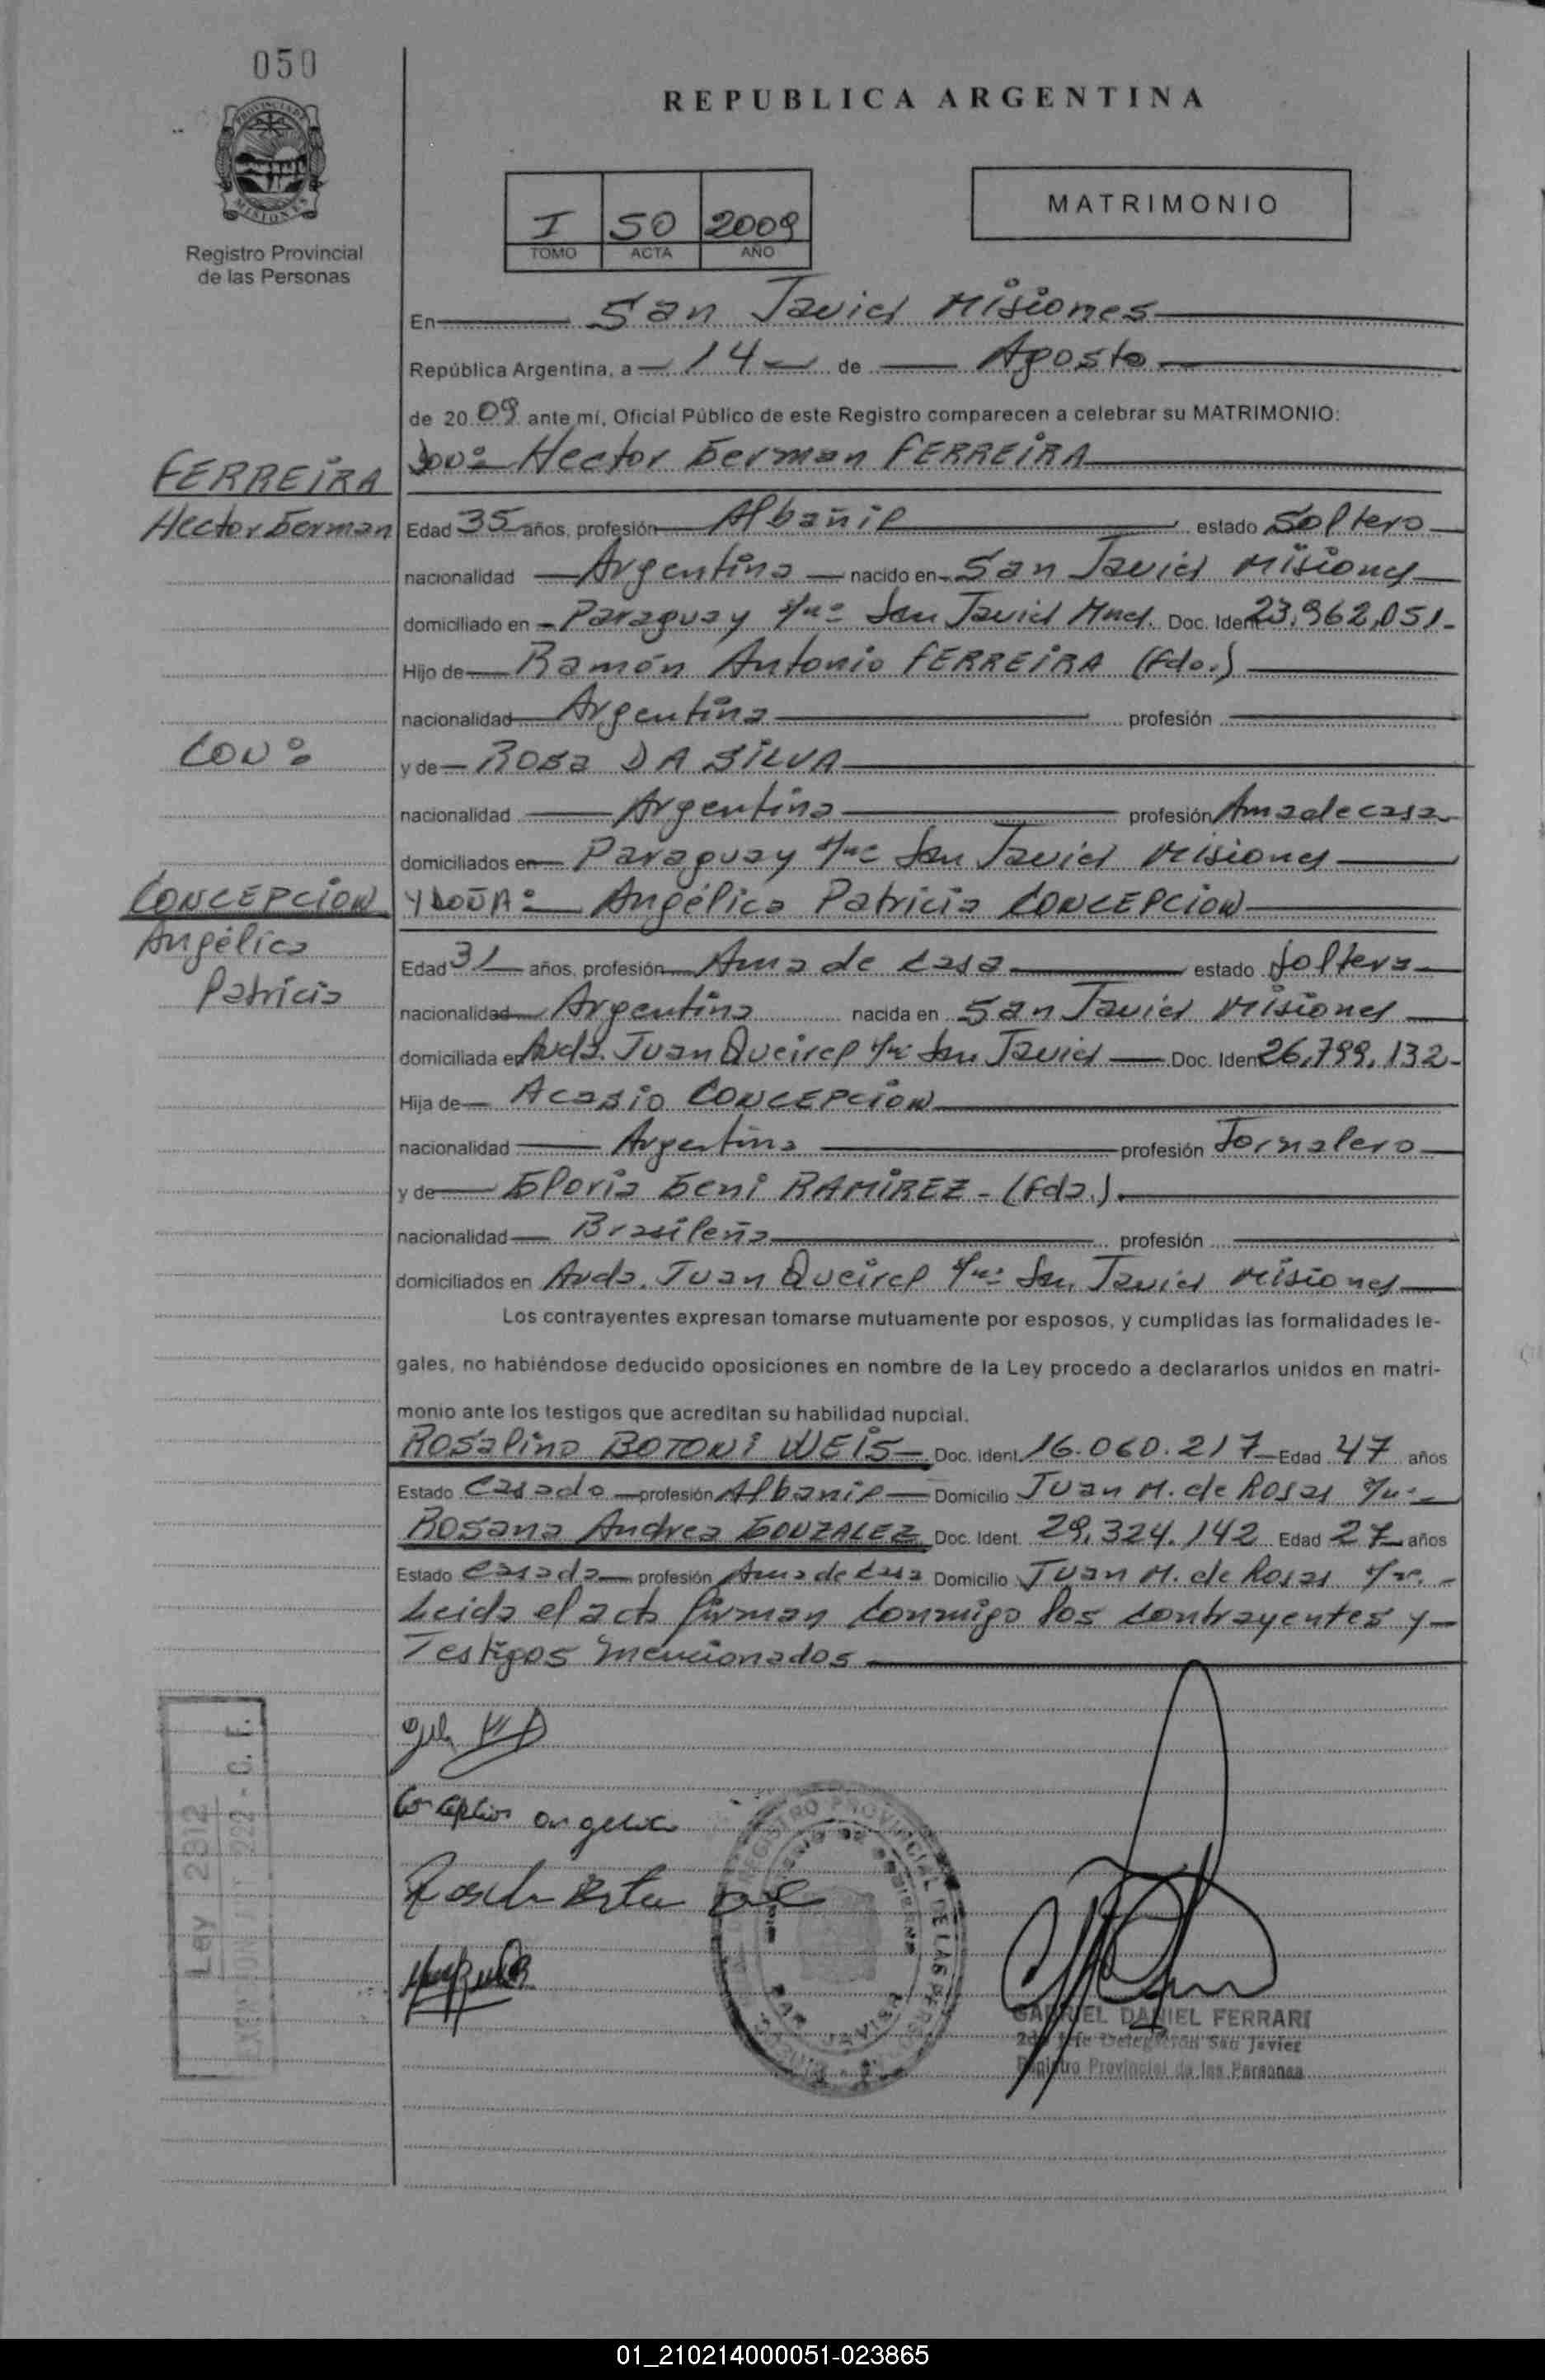 050
REPUBLICA ARGENTINA
PROVINCIA DE MISIONES
Registro Provincial
de las Personas
I 50 2009
TOMO ACTA AÑO
MATRIMONIO
En San Javier Misiones
República Argentina, a 14 de Agosto
de 20 09 ante mí, Oficial Público de este Registro comparecen a celebrar su MATRIMONIO:
DON: Hector German FERREIRA
FERREIRA
Hector German
Edad 35 años, profesión Albañil estado Soltero
nacionalidad Argentina nacido en San Javier Misiones
domiciliado en Paraguay s/nº San Javier Mnes. Doc. Ident 23.962.051
Hijo de Ramón Antonio FERREIRA (fdo.)
nacionalidad Argentina profesión
CON:
y de Rosa DA SILVA
nacionalidad Argentina profesión Ama de casa
domiciliados en Paraguay s/nº San Javier Misiones
CONCEPCION
Angélica
Patricia
Y DOÑA: Angélica Patricia CONCEPCION
Edad 31 años, profesión Ama de casa estado Soltera
nacionalidad Argentina nacida en San Javier Misiones
domiciliada en Avda. Juan Queirel s/nº San Javier Doc. Ident 26.799.132
Hija de Acasio CONCEPCION
nacionalidad Argentina profesión Jornalero
y de Gloria Geni RAMIREZ - (fda.)
nacionalidad Brasileña profesión
domiciliados en Avda. Juan Queirel s/nº San Javier Misiones
Los contrayentes expresan tomarse mutuamente por esposos, y cumplidas las formalidades le-
gales, no habiéndose deducido oposiciones en nombre de la Ley procedo a declararlos unidos en matri-
monio ante los testigos que acreditan su habilidad nupcial.
Rosalino BOTONI WEIS Doc. Ident. 16.060.217 Edad 47 años
Estado Casado profesión Albanil Domicilio Juan M. de Rosas s/nº
Rosana Andrea GONZALEZ Doc. Ident. 29.324.142 Edad 27 años
Estado Casada profesión Ama de casa Domicilio Juan M. de Rosas s/nº
Leida el acta firman conmigo los contrayentes y
Testigos mencionados
Ley 2302
Concepcion angelica
REGISTRO PROVINCIAL DE LAS PERSONAS
SAN JAVIER
GABRIEL DANIEL FERRARI
2do Jefe Delegación San Javier
Registro Provincial de las Personas
01_210214000051-023865